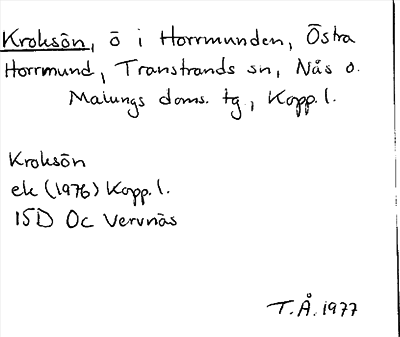 Kroksön, ö i Horrmunden, Östra
Horrmund, Transtrands sn, Nås o.
Malungs doms. tg, Kopp. l.
Kroksön
ek (1976) Kopp. l.
15D Oc Vervnäs
T.Å. 1977